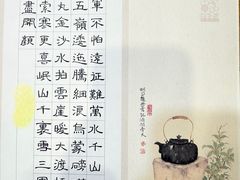 軍不怕遠征難萬水千山
五嶺逶迤騰細浪烏蒙磅
丸金沙水拍雲崖暖大渡
索寒更喜岷山千裏雪三
盡開顏